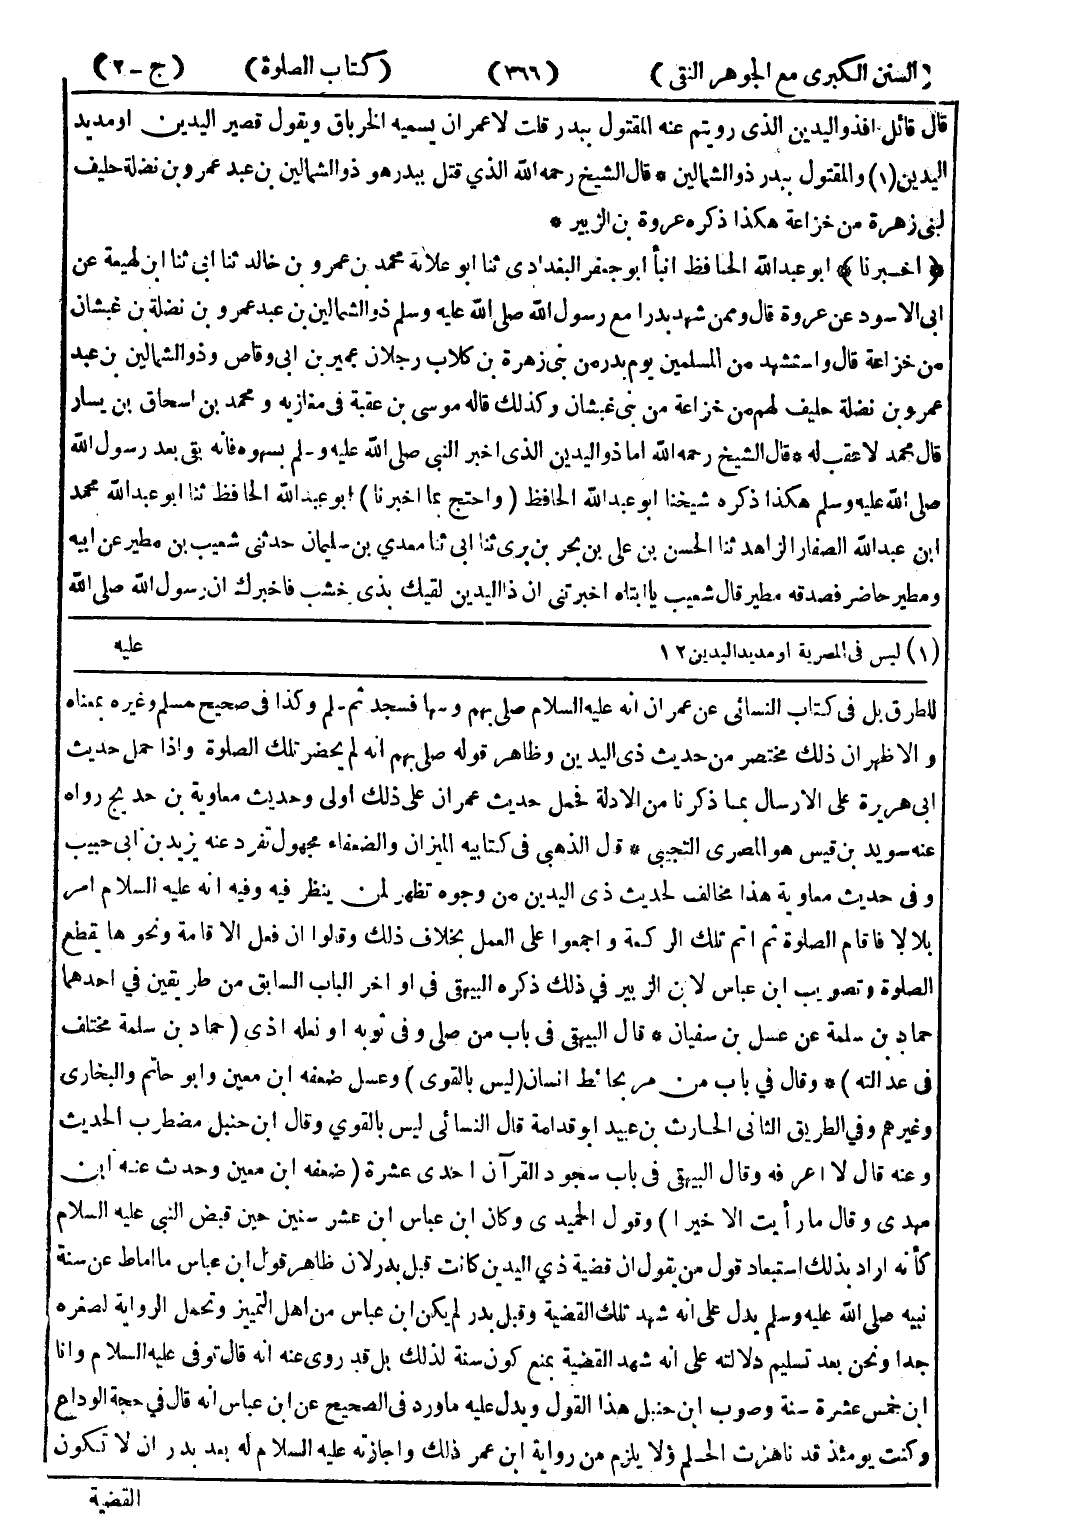 (السنن الكبرى مع الجوهر النقى) (٣٦٦) (كتاب الصلوة) (ج - ٢)
قال قائل افذو اليدين الذى رويتم عنه المقتول ببدر قلت لا عمران يسميه الخرباق ويقول قصير اليدين او مديد
اليدين (١) والمقتول ببدر ذو الشمالين * قال الشيخ رحمه الله الذي قتل ببدر هو ذو الشمالين بن عبد عمرو بن نضلة حليف
لبنى زهرة من خزاعة هكذا ذكره عروة بن الزبير *
﴿ اخبرنا ﴾ ابو عبد الله الحافظ انبأ ابو جعفر البغدادى ثنا ابو علاثة محمد بن عمرو بن خالد ثنا ابى ثنا ابن لهيعة عن
ابى الاسود عن عروة قال وممن شهد بدرا مع رسول الله صلى الله عليه وسلم ذو الشمالين بن عبد عمرو بن نضلة بن غبشان
من خزاعة قال واستشهد من المسلمين يوم بدر من بنى زهرة بن كلاب رجلان عمير بن ابى وقاص وذو الشمالين بن عبد
عمرو بن نضلة حليف لهم من خزاعة من بنى غبشان وكذلك قاله موسى بن عقبة فى مغازيه و محمد بن اسحاق بن يسار
قال محمد لا عقب له * قال الشيخ رحمه الله اما ذو اليدين الذى اخبر النبى صلى الله عليه وسلم بسهوه فانه بقى بعد رسول الله
صلى الله عليه وسلم هكذا ذكره شيخنا ابو عبد الله الحافظ (واحتج بما اخبرنا) ابو عبد الله الحافظ ثنا ابو عبد الله محمد
ابن عبد الله الصفار الزاهد ثنا الحسن بن على بن بحر بن برى ثنا ابى ثنا معدي بن سليمان حدثنى شعيب بن مطير عن ابيه
ومطير حاضر فصدقه مطير قال شعيب يا ابتاه اخبرتنى ان ذا اليدين لقيك بذى خشب فاخبرك ان رسول الله صلى الله
(١) ليس فى المصرية او مديد اليدين ١٢ عليه
للطرق بل فى كتاب النسائى عن عمران انه عليه السلام صلى بهم وسها فسجد ثم سلم وكذا فى صحيح مسلم وغيره بمعناه
و الاظهر ان ذلك مختصر من حديث ذى اليدين وظاهر قوله صلى بهم انه لم يحضر تلك الصلوة واذا حمل حديث
ابى هريرة على الارسال بما ذكرنا من الادلة فحمل حديث عمران على ذلك اولى وحديث معاوية بن حديج رواه
عنه سويد بن قيس هو المصرى التجيبى * قال الذهبى فى كتابيه الميزان والضعفاء مجهول تفرد عنه يزيد بن ابى حبيب
وفى حديث معاوية هذا مخالف لحديث ذى اليدين من وجوه تظهر لمن ينظر فيه وفيه انه عليه السلام امر
بلالا فاقام الصلوة ثم اتم تلك الركعة واجمعوا على العمل بخلاف ذلك وقالوا ان فعل الاقامة ونحوها يقطع
الصلوة وتصويب ابن عباس لابن الزبير في ذلك ذكره البيهقى فى اواخر الباب السابق من طريقين في احدهما
حماد بن سلمة عن عسل بن سفيان * قال البيهقى فى باب من صلى وفى ثوبه او نعله اذى (حماد بن سلمة مختلف
فى عدالته) * وقال في باب من مر بحائط انسان (ليس بالقوى) وعسل ضعفه ابن معين وابو حاتم والبخارى
وغيرهم وفي الطريق الثانى الحارث بن عبيد ابو قدامة قال النسائى ليس بالقوي وقال ابن حنبل مضطرب الحديث
وعنه قال لا اعرفه وقال البيهقى فى باب سجود القرآن احدى عشرة (ضعفه ابن معين وحدث عنه ابن
مهدى وقال ما رأيت الا خيرا) وقول الحميدى وكان ابن عباس ابن عشر سنين حين قبض النبي عليه السلام
كأنه اراد بذلك استبعاد قول من يقول ان قضية ذي اليدين كانت قبل بدر لان ظاهر قول ابن عباس ما اماط عن سنة
نبيه صلى الله عليه وسلم يدل على انه شهد تلك القضية وقبل بدر لم يكن ابن عباس من اهل التمييز وتحمل الرواية لصغره
جدا ونحن بعد تسليم دلالته على انه شهد القضية بمنع كون سنة لذلك بل قد روى عنه انه قال توفى عليه السلام وانا
ابن خمس عشرة سنة وصوب ابن حنبل هذا القول ويدل عليه ماورد فى الصحيح عن ابن عباس انه قال في حجة الوداع
وكنت يومئذ قد ناهزت الحلم ولا يلزم من رواية ابن عمر ذلك واجازته عليه السلام له بعد بدر ان لا تكون
القضية